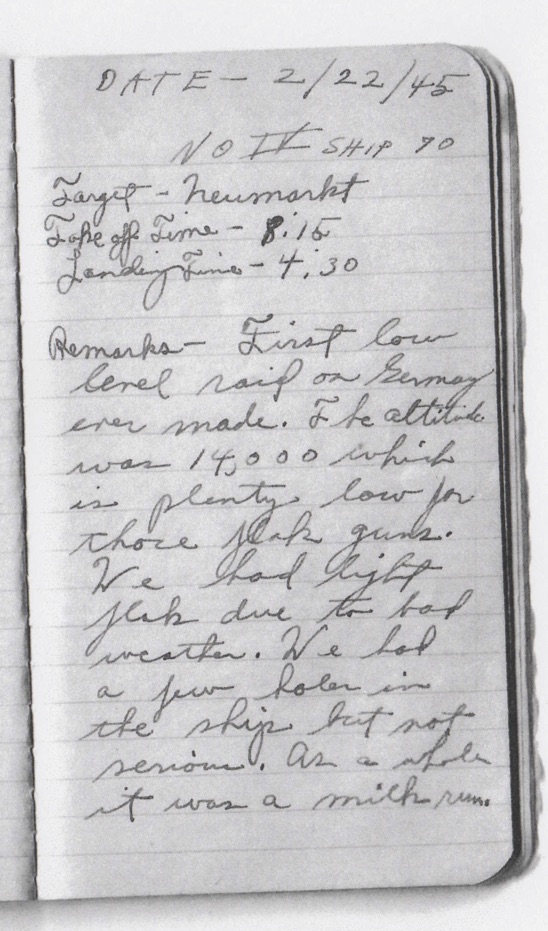 DATE - 2/22/45
NO IV SHIP 70
Target - Neumarkt
Take off Time - 8:15
Landing Time - 4:30
Remarks - First low
level raid on Germay
ever made. The altitude
was 14,000 which
is plenty low for
those flak guns.
We had light
flak due to bad
weather. We had
a few holes in
the ship but not
serious. As a whole
it was a milk run.